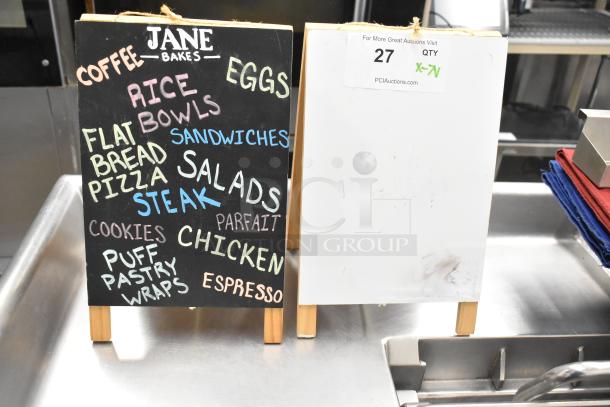 JANE
BAKES
COFFEE
EGGS
RICE
BOWLS
FLAT
BREAD
PIZZA
SANDWICHES
SALADS
STEAK
PARFAIT
COOKIES
CHICKEN
PUFF
PASTRY
WRAPS
ESPRESSO
For More Great Auctions Visit
27
QTY
PCIAuctions.com
pci
AUCTION GROUP